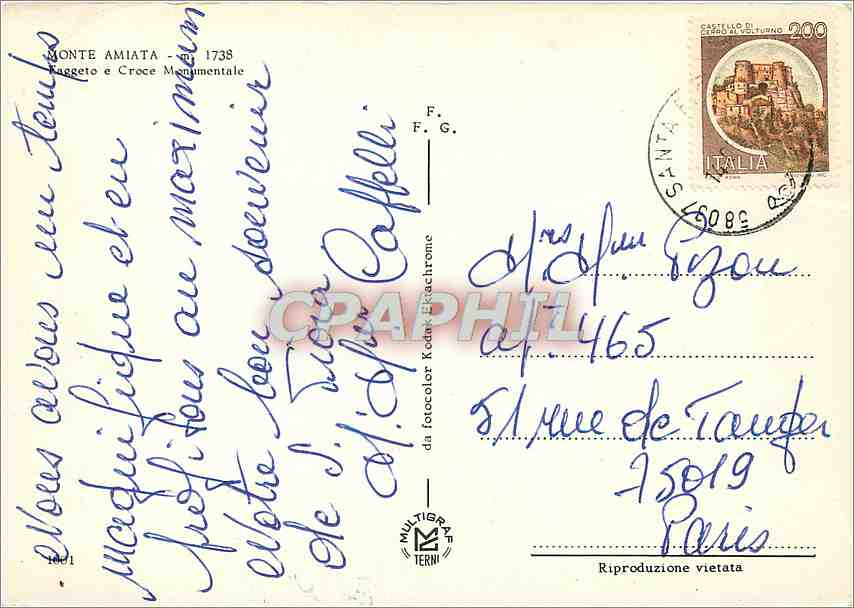 MONTE AMIATA - m. 1738
Faggeto e Croce Monumentale
Nous avons un temps
magnifique et en
profitons au maximum
Notre bon souvenir
de S. Fiora
M. Mme Caffelli
1001
F.
F. G.
da fotocolor Kodak Ektachrome
MULTIGRAF
TERNI
CASTELLO DI
CERRO AL VOLTURNO
200
ITALIA
58037 SANTA
Mrs Mm. Pizon
apt. 465
51 rue de Tanger
75019
Paris
Riproduzione vietata
CPAPHIL